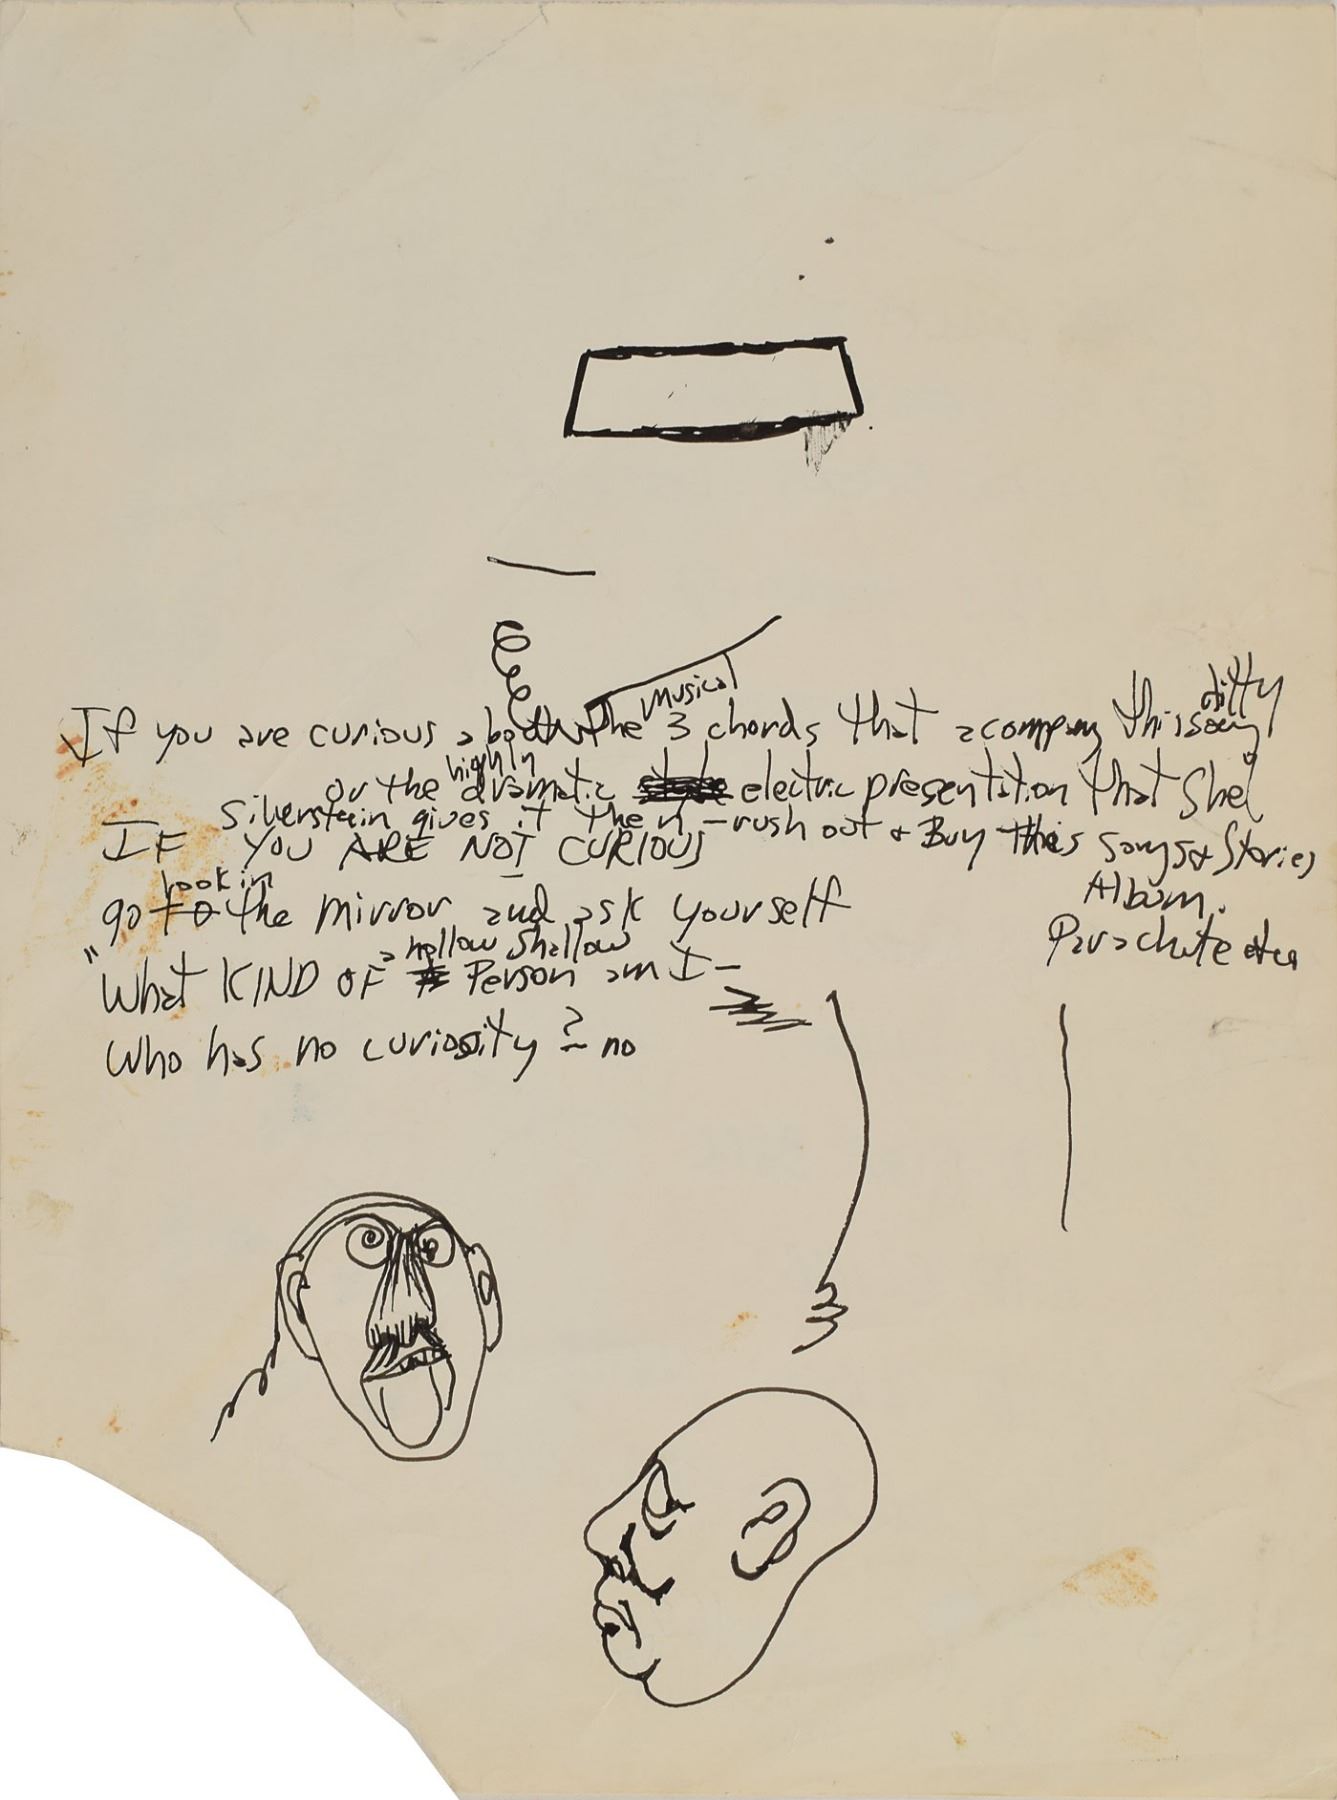 If you are curious about the musical 3 chords that acompany this song ditty
or the highly dramatic electric presentation that Shel
Silverstein gives it then - rush out & Buy this songs & Stories
Album.
Parachute
IF YOU ARE NOT CURIOUS
go to look in the mirror and ask yourself
"What KIND OF a hollow shallow Person am I -
Who has no curiosity? - no